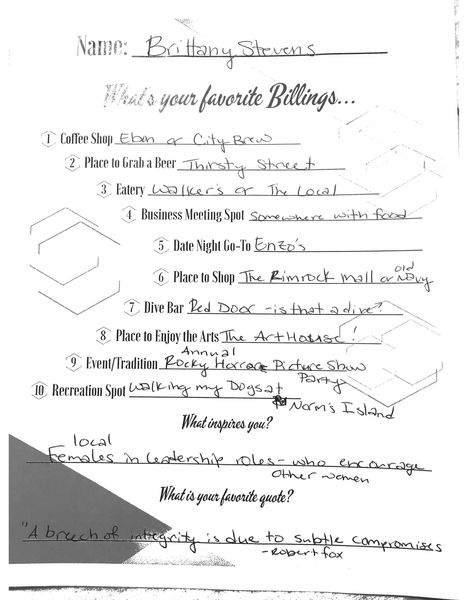 Name: Brittany Stevens
What's your favorite Billings...
1 Coffee Shop Ebon or City Brew
2 Place to Grab a Beer Thirsty Street
3 Eatery Walker's or The Local
4 Business Meeting Spot Somewhere with food
5 Date Night Go-To Enzo's
6 Place to Shop The Rimrock Mall or Old Navy
7 Dive Bar Red Door - is that a dive?
8 Place to Enjoy the Arts The Art House!
9 Event/Tradition Annual Rocky Horror Picture Show Party
10 Recreation Spot Walking my Dogs at
Norm's Island
What inspires you?
local
Females in leadership roles - who encourage
other women
What is your favorite quote?
"A breech of integrity is due to subtle compromises
- Robert fox